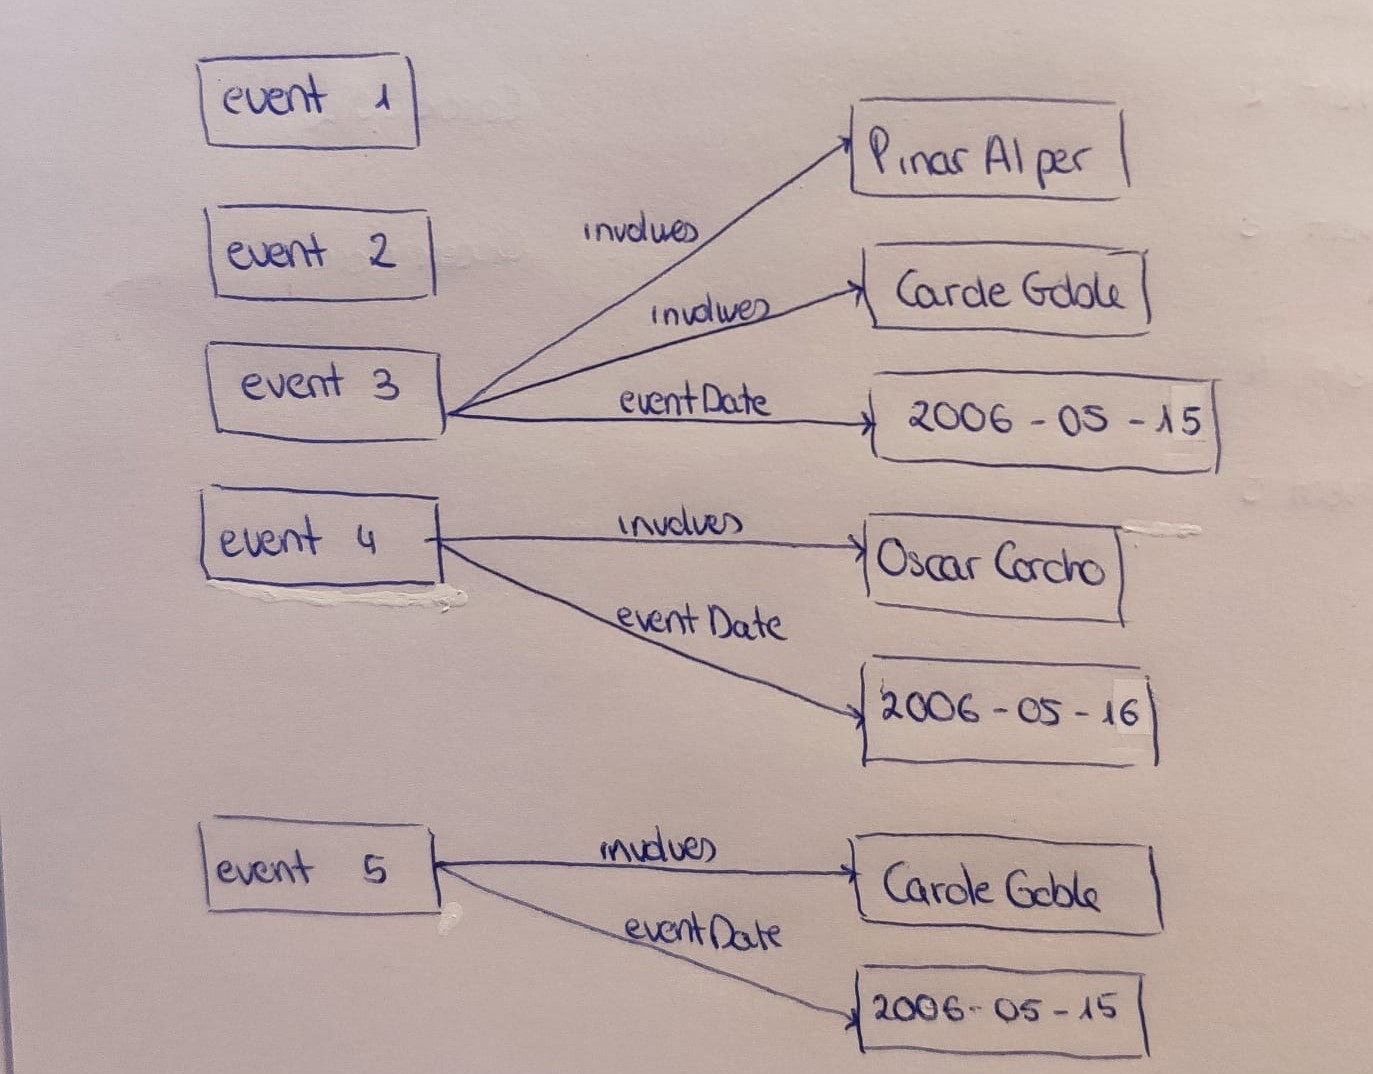 event 1
Pinar Alper
involves
event 2
Carole Goble
involves
event 3
eventDate
2006-05-15
event 4
involves
Oscar Corcho
eventDate
2006-05-16
event 5
involves
Carole Goble
eventDate
2006-05-15